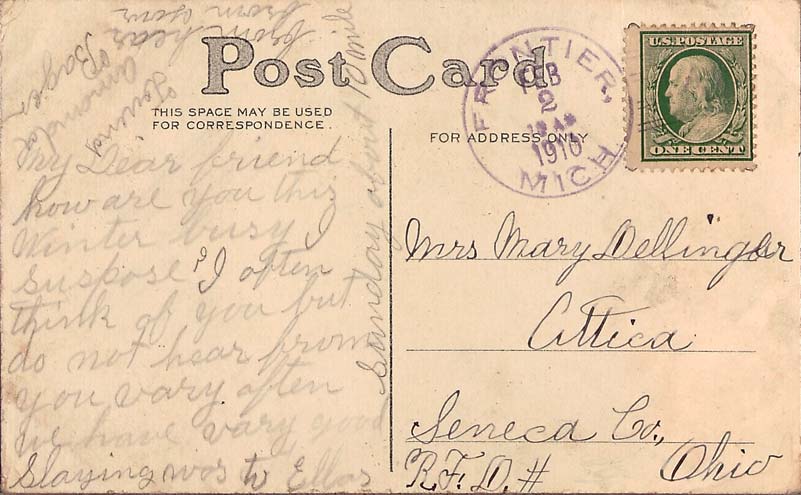 Post Card
THIS SPACE MAY BE USED
FOR CORRESPONDENCE.
FOR ADDRESS ONLY
FRONTIER,
FEB
2
1910
MICH
U.S. POSTAGE
ONE CENT
My Dear friend
how are you this
Winter busy I
suspose I often
think of you but
do not hear from
you vary often
we have vary good
Slaying was to Ellas
Sunday about
from hear
from your
friend
Amanda
Bager
Mrs Mary Dellinger
Attica
Seneca Co.,
Ohio
R.F.D. #